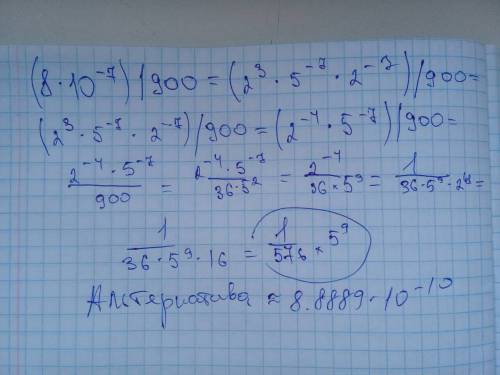 (8 · 10⁻⁷) | 900 = (2³ · 5⁻⁷ · 2⁻⁷) | 900 =
(2³ · 5⁻⁷ · 2⁻⁷) / 900 = (2⁻⁴ · 5⁻⁷) | 900 =
2⁻⁴ · 5⁻⁷ / 900 = 2⁻⁴ · 5⁻⁷ / 36 · 5² = 2⁻⁴ / 36 × 5⁹ = 1 / 36 · 5⁹ · 2⁴ =
1 / 36 · 5⁹ · 16 = 1 / 576 × 5⁹
Альтернатива ≈ 8.8889 · 10⁻¹⁰